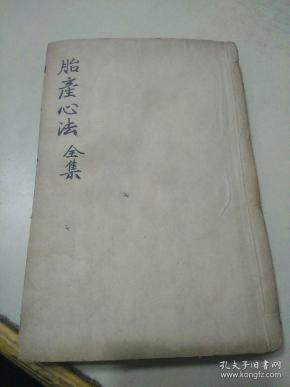 胎產心法 全集
孔夫子旧书网